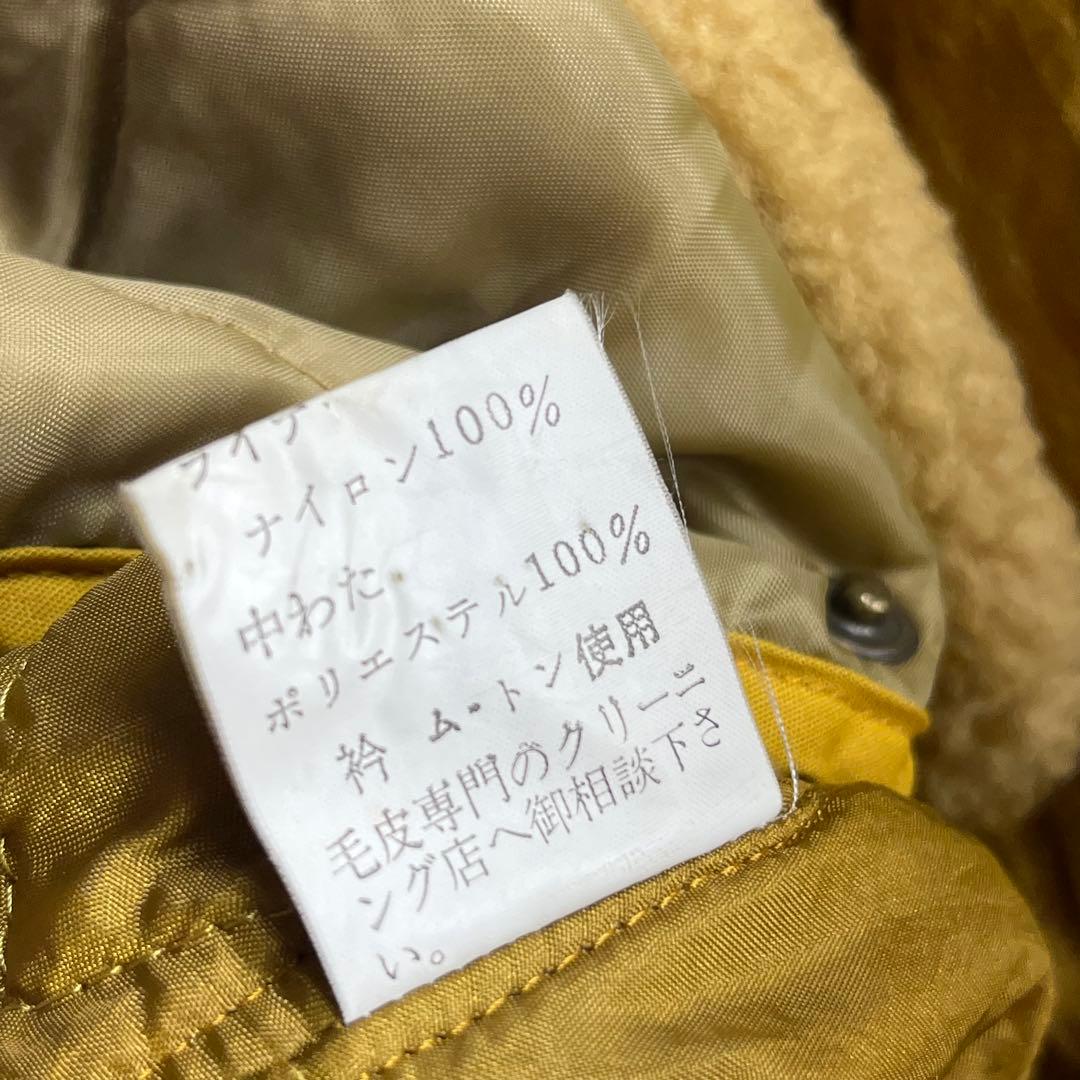 ナイロン100%
中わた
ポリエステル100%
衿 ム-トン使用
毛皮専門のクリーニ
ング店へ御相談下さ
い。